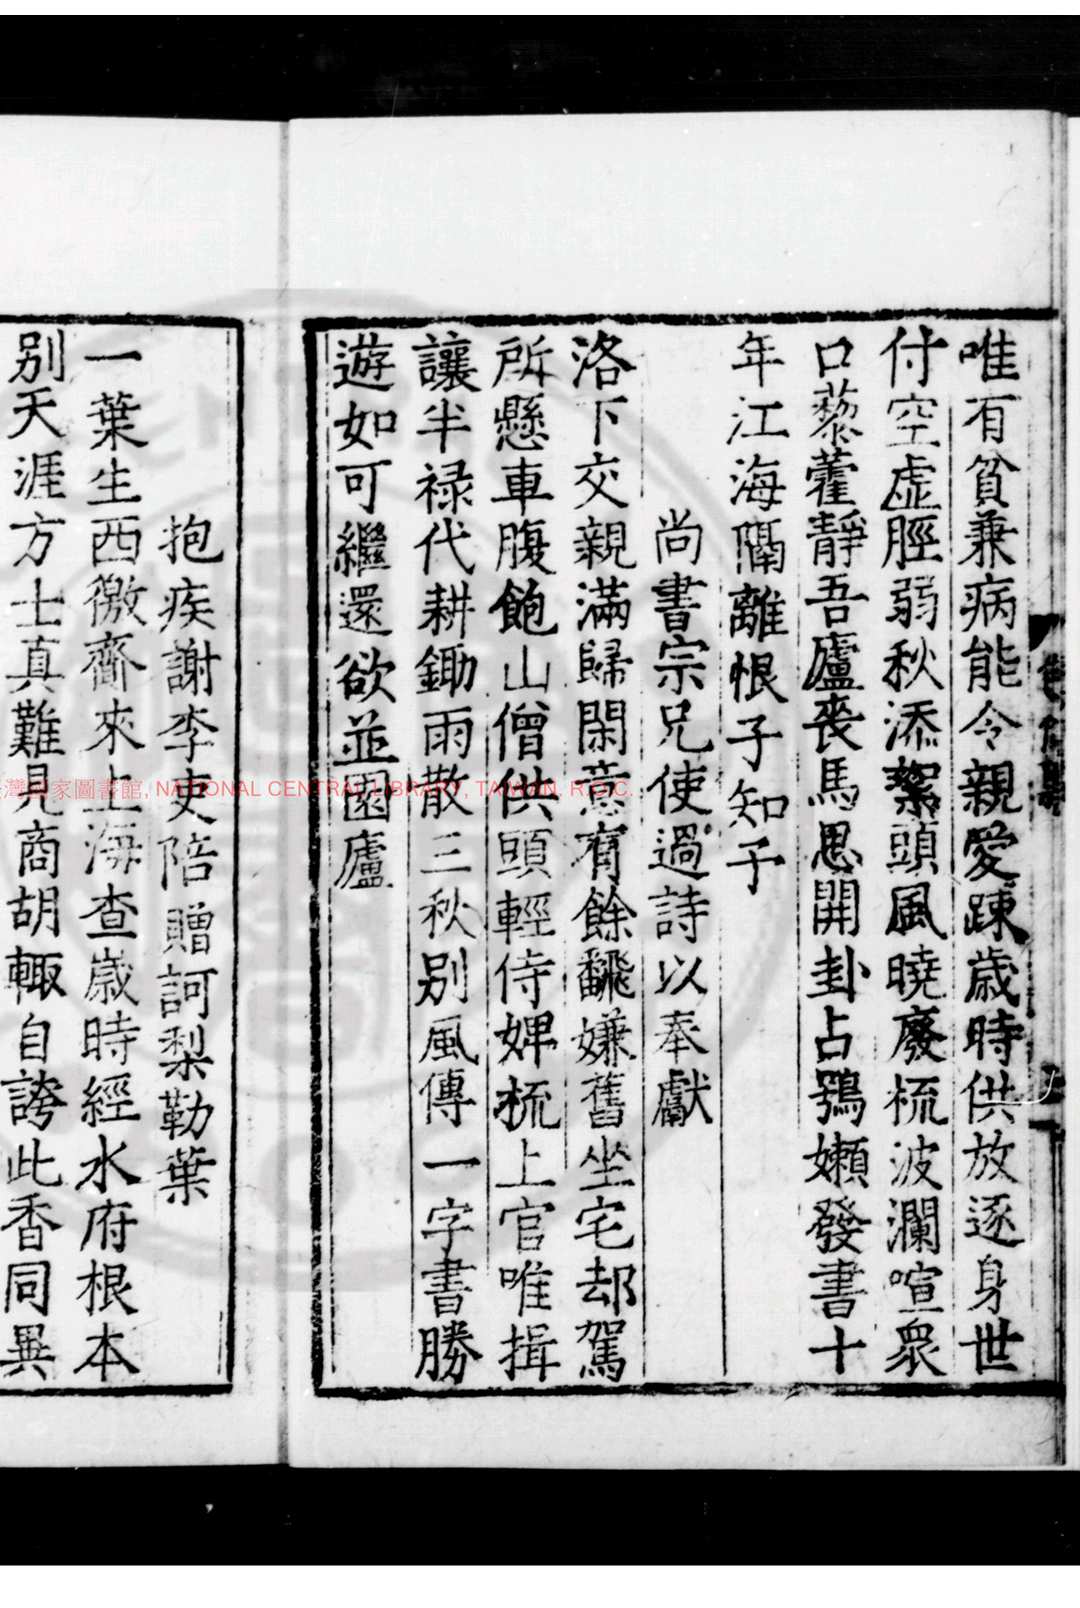 唯有貧兼病能令親愛踈歲時供放逐身世
付空虛脛弱秋添絮頭風曉廢梳波瀾喧衆
口藜藿靜吾廬喪馬思開卦占鴞嬾發書十
年江海隔離恨子知予
尚書宗兄使過詩以奉獻
洛下交親滿歸閑意有餘翻嫌舊坐宅却駕
所懸車腹飽山僧供頭輕侍婢梳上官唯揖
讓半禄代耕鋤雨散三秋别風傳一字書勝
遊如可繼還欲並園廬
抱疾謝李吏陪贈訶梨勒葉
一葉生西徼齎來上海查歲時經水府根本
别天涯方士真難見商胡輙自誇此香同異
臺灣國家圖書館, NATIONAL CENTRAL LIBRARY, TAIWAN. R.O.C.